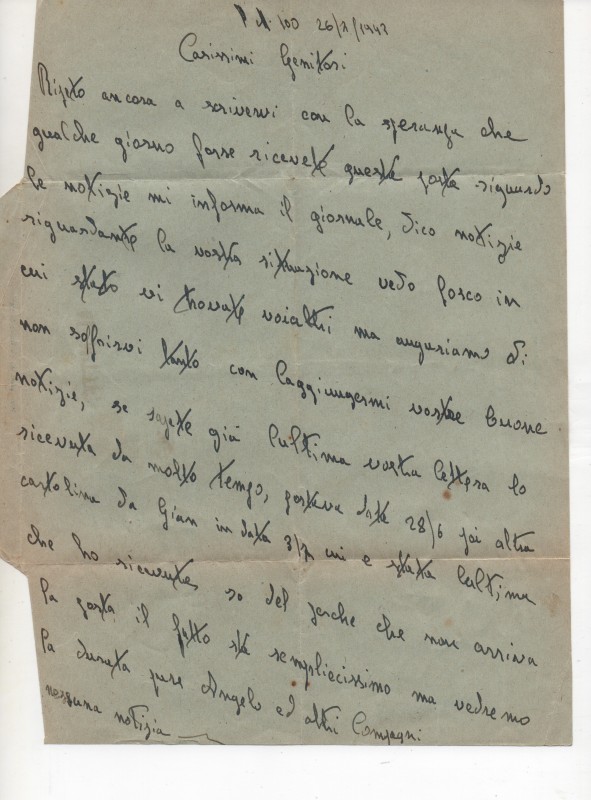 P.M. 100 26/7/1943
Carissimi Genitori
Ripeto ancora a scrivervi con la speranza che
qualche giorno forse ricevete queste poste riguardo
le notizie mi informa il giornale, dico notizie
riguardante la vostra situazione vedo fosco in
cui stato vi trovate voialtri ma auguriamo di
non soffrirvi tanto con l'aggiungermi vostre buone
notizie, se sapete già l'ultima vostra lettera lo
ricevuta da molto tempo, portava data 28/6 poi altra
cartolina da Gian in data 3/7 cui e stata l'ultima
che ho ricevuta, so del perche che non arriva
la posta il fatto sta sempliecissimo ma vedremo
la durata pure Angelo ed altri Compagni
nessuna notizia